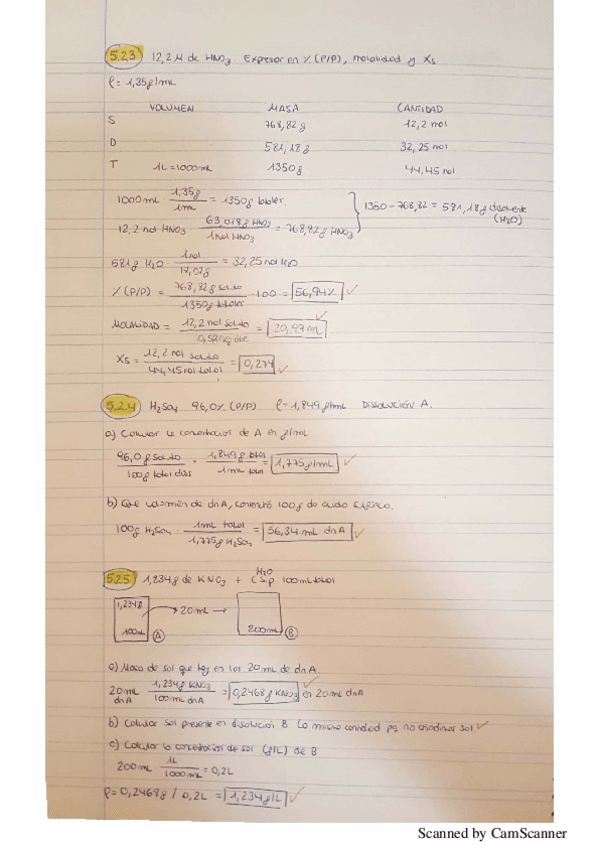 5.2.3 12,2 M de HNO3 Expresar en % (P/P), molalidad y Xs
ρ = 1,35 g/mL
VOLUMEN MASA CANTIDAD
S 768,82 g 12,2 mol
D 581,18 g 32,25 mol
T 1L = 1000mL 1350g 44,45 mol
1000mL · 1,35g / 1mL = 1350g totales
12,2 mol HNO3 · 63,018g HNO3 / 1mol HNO3 = 768,82g
1350 - 768,82 = 581,18g disolvente (H2O)
581g H2O · 1mol / = 32,25 mol H2O
% (P/P) = 768,82g soluto / 1350g totales · 100 = 56,94%
MOLALIDAD = 12,2 mol soluto / = 20,99 m
Xs = 12,2 mol soluto / 44,45 mol totales = 0,274
5.2.4 H2SO4 96,0% (P/P) ρ = 1,849 g/mL DISOLUCIÓN A.
a) Calcular la concentración de A en g/mL
96,0g soluto / 100g total · 1,849g total / 1mL total = 1,775g/mL
b) Que volumen de dnA, contendrá 100g de ácido
100g H2SO4 · 1mL total / 1,775g H2SO4 = 56,34 mL dnA
5.2.5 1,234g de KNO3 + H2O C.s.p 100mL totales
1,234g 20mL
100mL A 200mL B
a) Masa de sal que hay en los 20 mL de dnA.
20mL dnA · 1,234g KNO3 / 100mL dnA = 0,2468g KNO3 en 20mL dnA
b) Calcular sal presente en disolución B. La misma cantidad pq no sal
c) Calcular la concentración de sal (g/L) de B
200mL · 1L / 1000mL = 0,2L
ρ = 0,2468g / 0,2L = 1,234g/L
Scanned by CamScanner